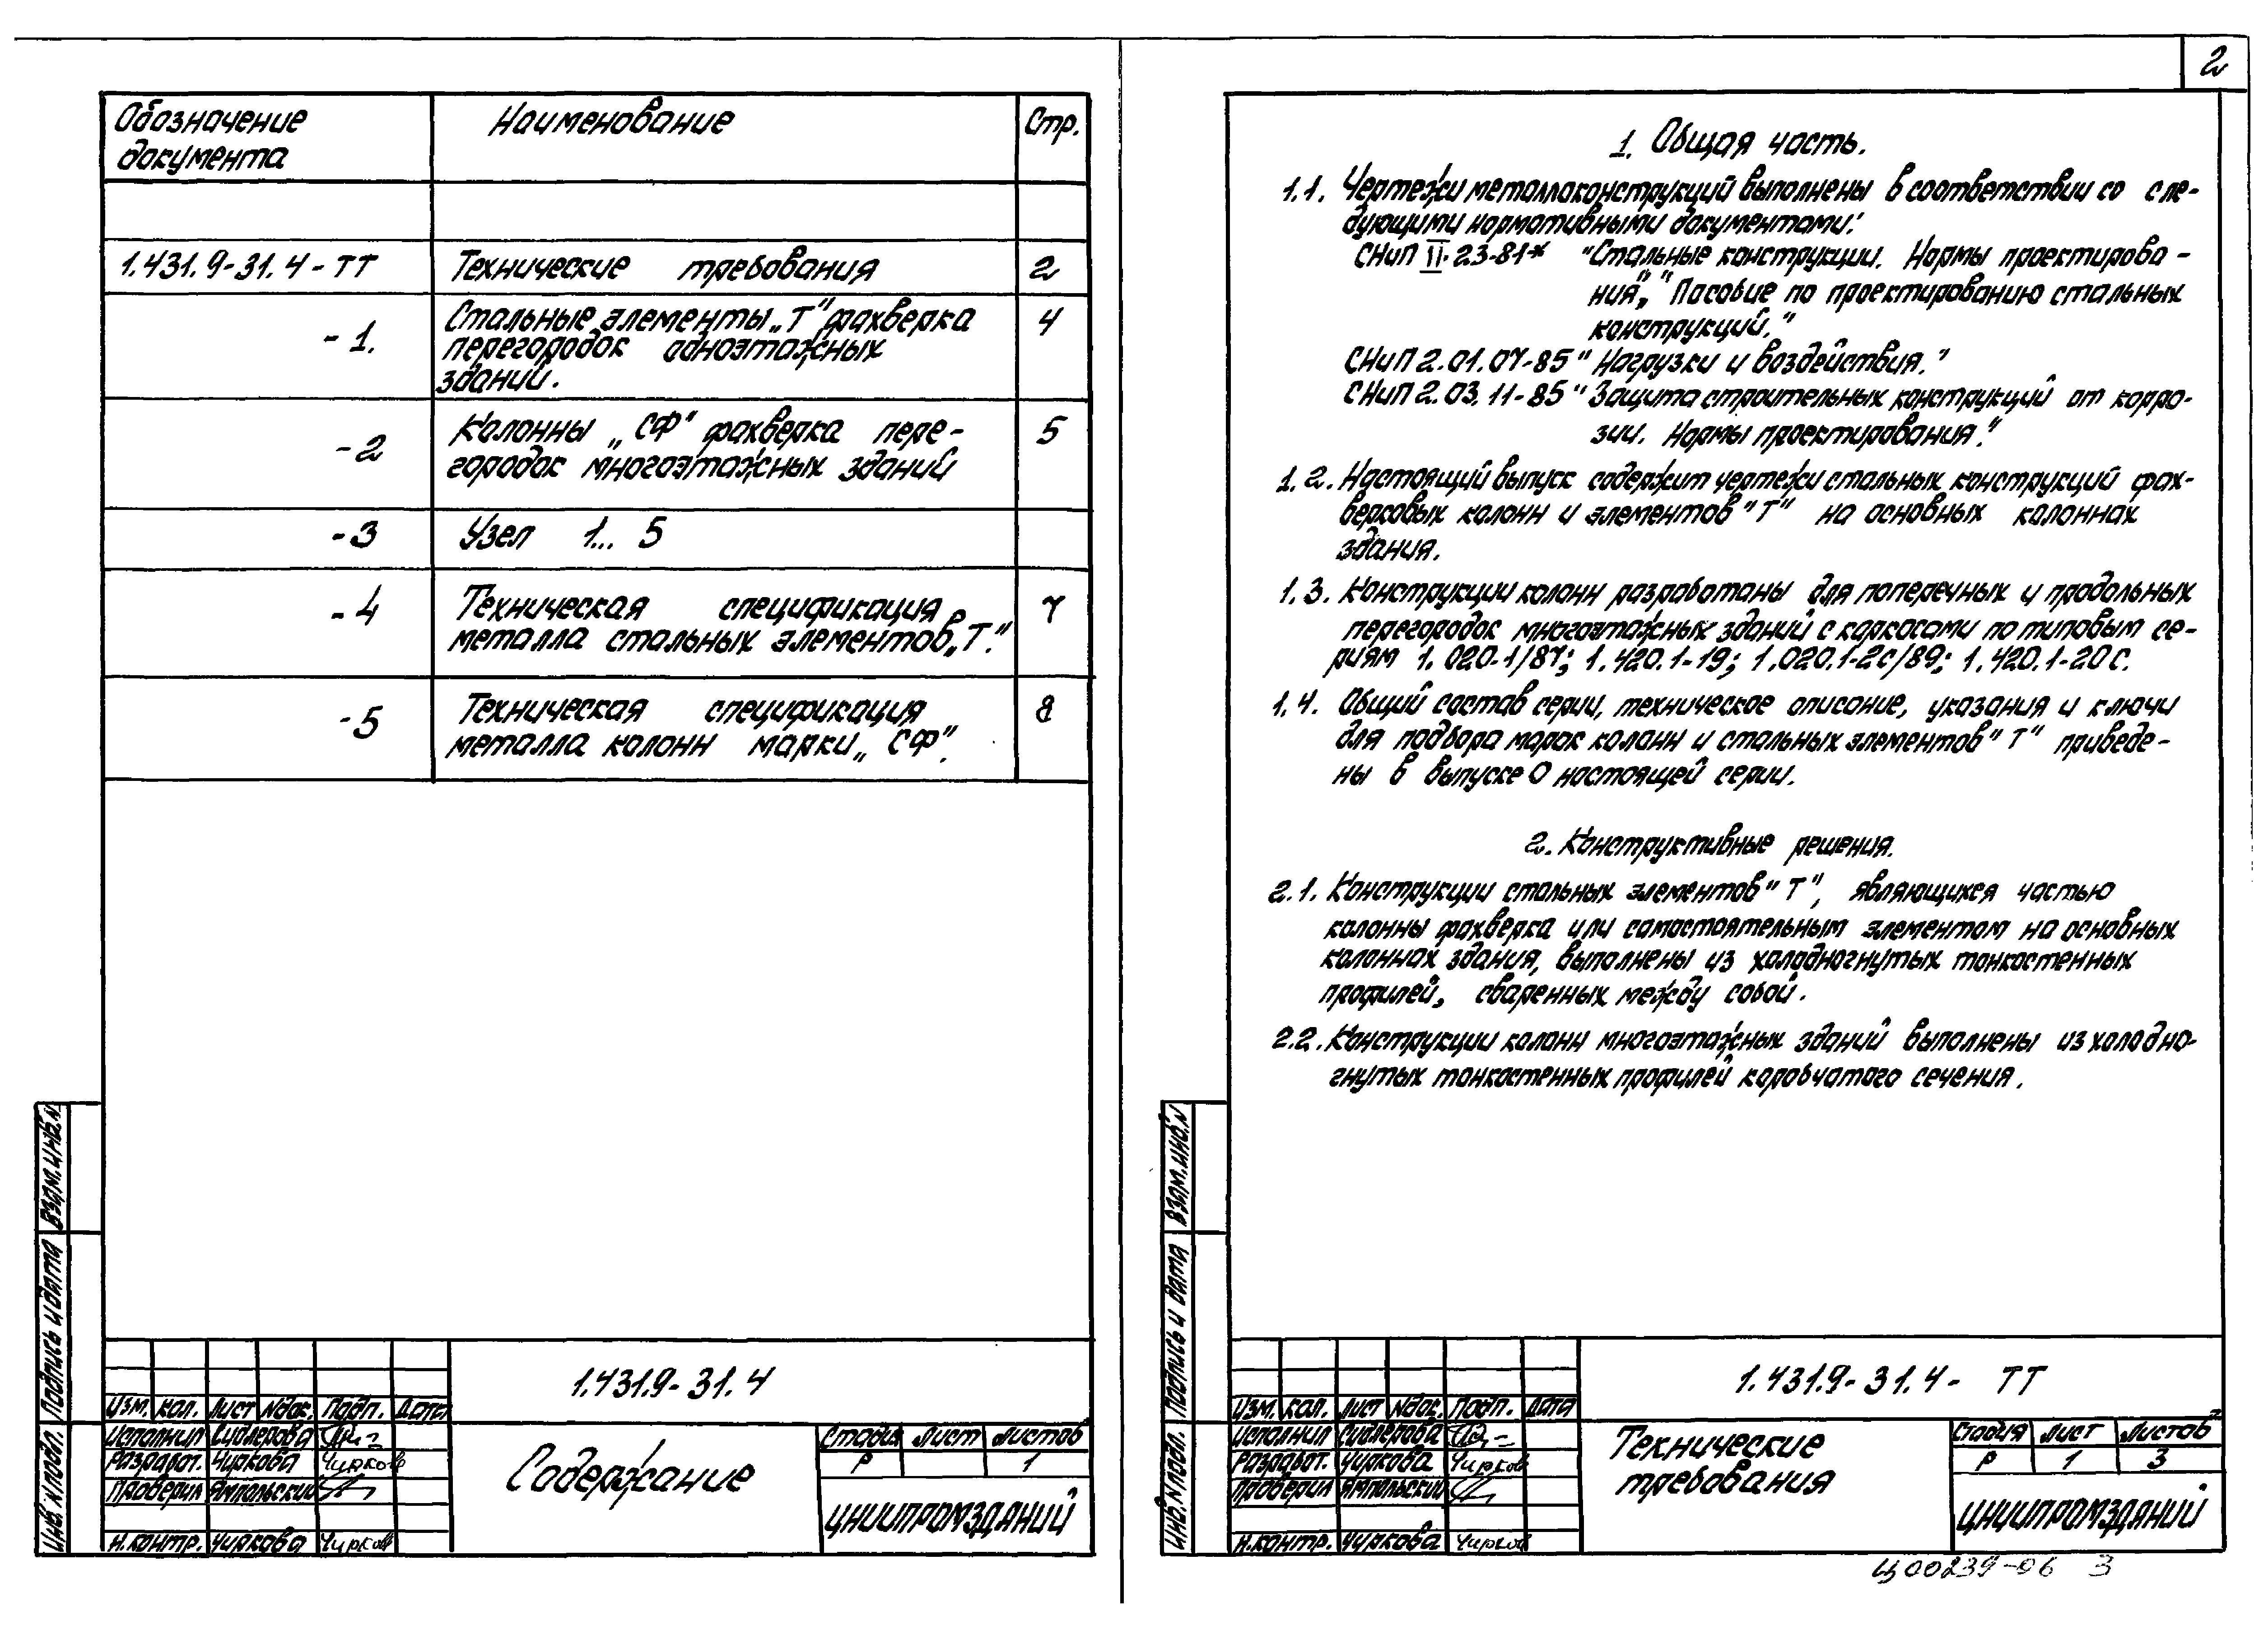 Обозначение документа | Наименование | Стр.
1.431.9-31.4-ТТ | Технические требования | 2
-1. | Стальные элементы „Т" фахверка
перегородок одноэтажных
зданий. | 4
-2 | Колонны „СФ" фахверка пере-
городок многоэтажных зданий | 5
-3 | Узел 1... 5
-4 | Техническая спецификация
металла стальных элементов „Т". | 7
-5 | Техническая спецификация
металла колонн марки „СФ". | 8
Взам.инв.N
Подпись и дата
Инв.N подл.
1.431.9-31.4
Изм. Кол. Лист Nдок. Подп. Дата
Исполнил Сидлерова
Разработ. Чиркова Чирков
Проверил Ямпольский
Н.контр. Чиркова Чирков
Содержание
Стадия Лист Листов
Р 1
ЦНИИПРОМЗДАНИЙ
2
1. Общая часть.
1.1. Чертежи металлоконструкций выполнены в соответствии со сле-
дующими нормативными документами:
СНиП II-23-81* "Стальные конструкции. Нормы проектирова-
ния", "Пособие по проектированию стальных
конструкций."
СНиП 2.01.07-85 "Нагрузки и воздействия."
СНиП 2.03.11-85 "Защита строительных конструкций от корро-
зии. Нормы проектирования."
1.2. Настоящий выпуск содержит чертежи стальных конструкций фах-
верковых колонн и элементов "Т" на основных колоннах
здания.
1.3. Конструкции колонн разработаны для поперечных и продольных
перегородок многоэтажных зданий с каркасами по типовым се-
риям 1.020-1/87; 1.420.1-19; 1.020.1-2с/89; 1.420.1-20с.
1.4. Общий состав серии, техническое описание, указания и ключи
для подбора марок колонн и стальных элементов "Т" приведе-
ны в выпуске 0 настоящей серии.
2. Конструктивные решения.
2.1. Конструкции стальных элементов "Т", являющихся частью
колонны фахверка или самостоятельным элементом на основных
колоннах здания, выполнены из холодногнутых тонкостенных
профилей, сваренных между собой.
2.2. Конструкции колонн многоэтажных зданий выполнены из холодно-
гнутых тонкостенных профилей коробчатого сечения.
Взам.инв.N
Подпись и дата
Инв.N подл.
1.431.9-31.4- ТТ
Изм. Кол. Лист Nдок. Подп. Дата
Исполнил Сидлерова
Разработ. Чиркова Чирков
Проверил Ямпольский
Н.контр. Чиркова Чирков
Технические
требования
Стадия Лист Листов
Р 1 3
ЦНИИПРОМЗДАНИЙ
Ц00239-06 3